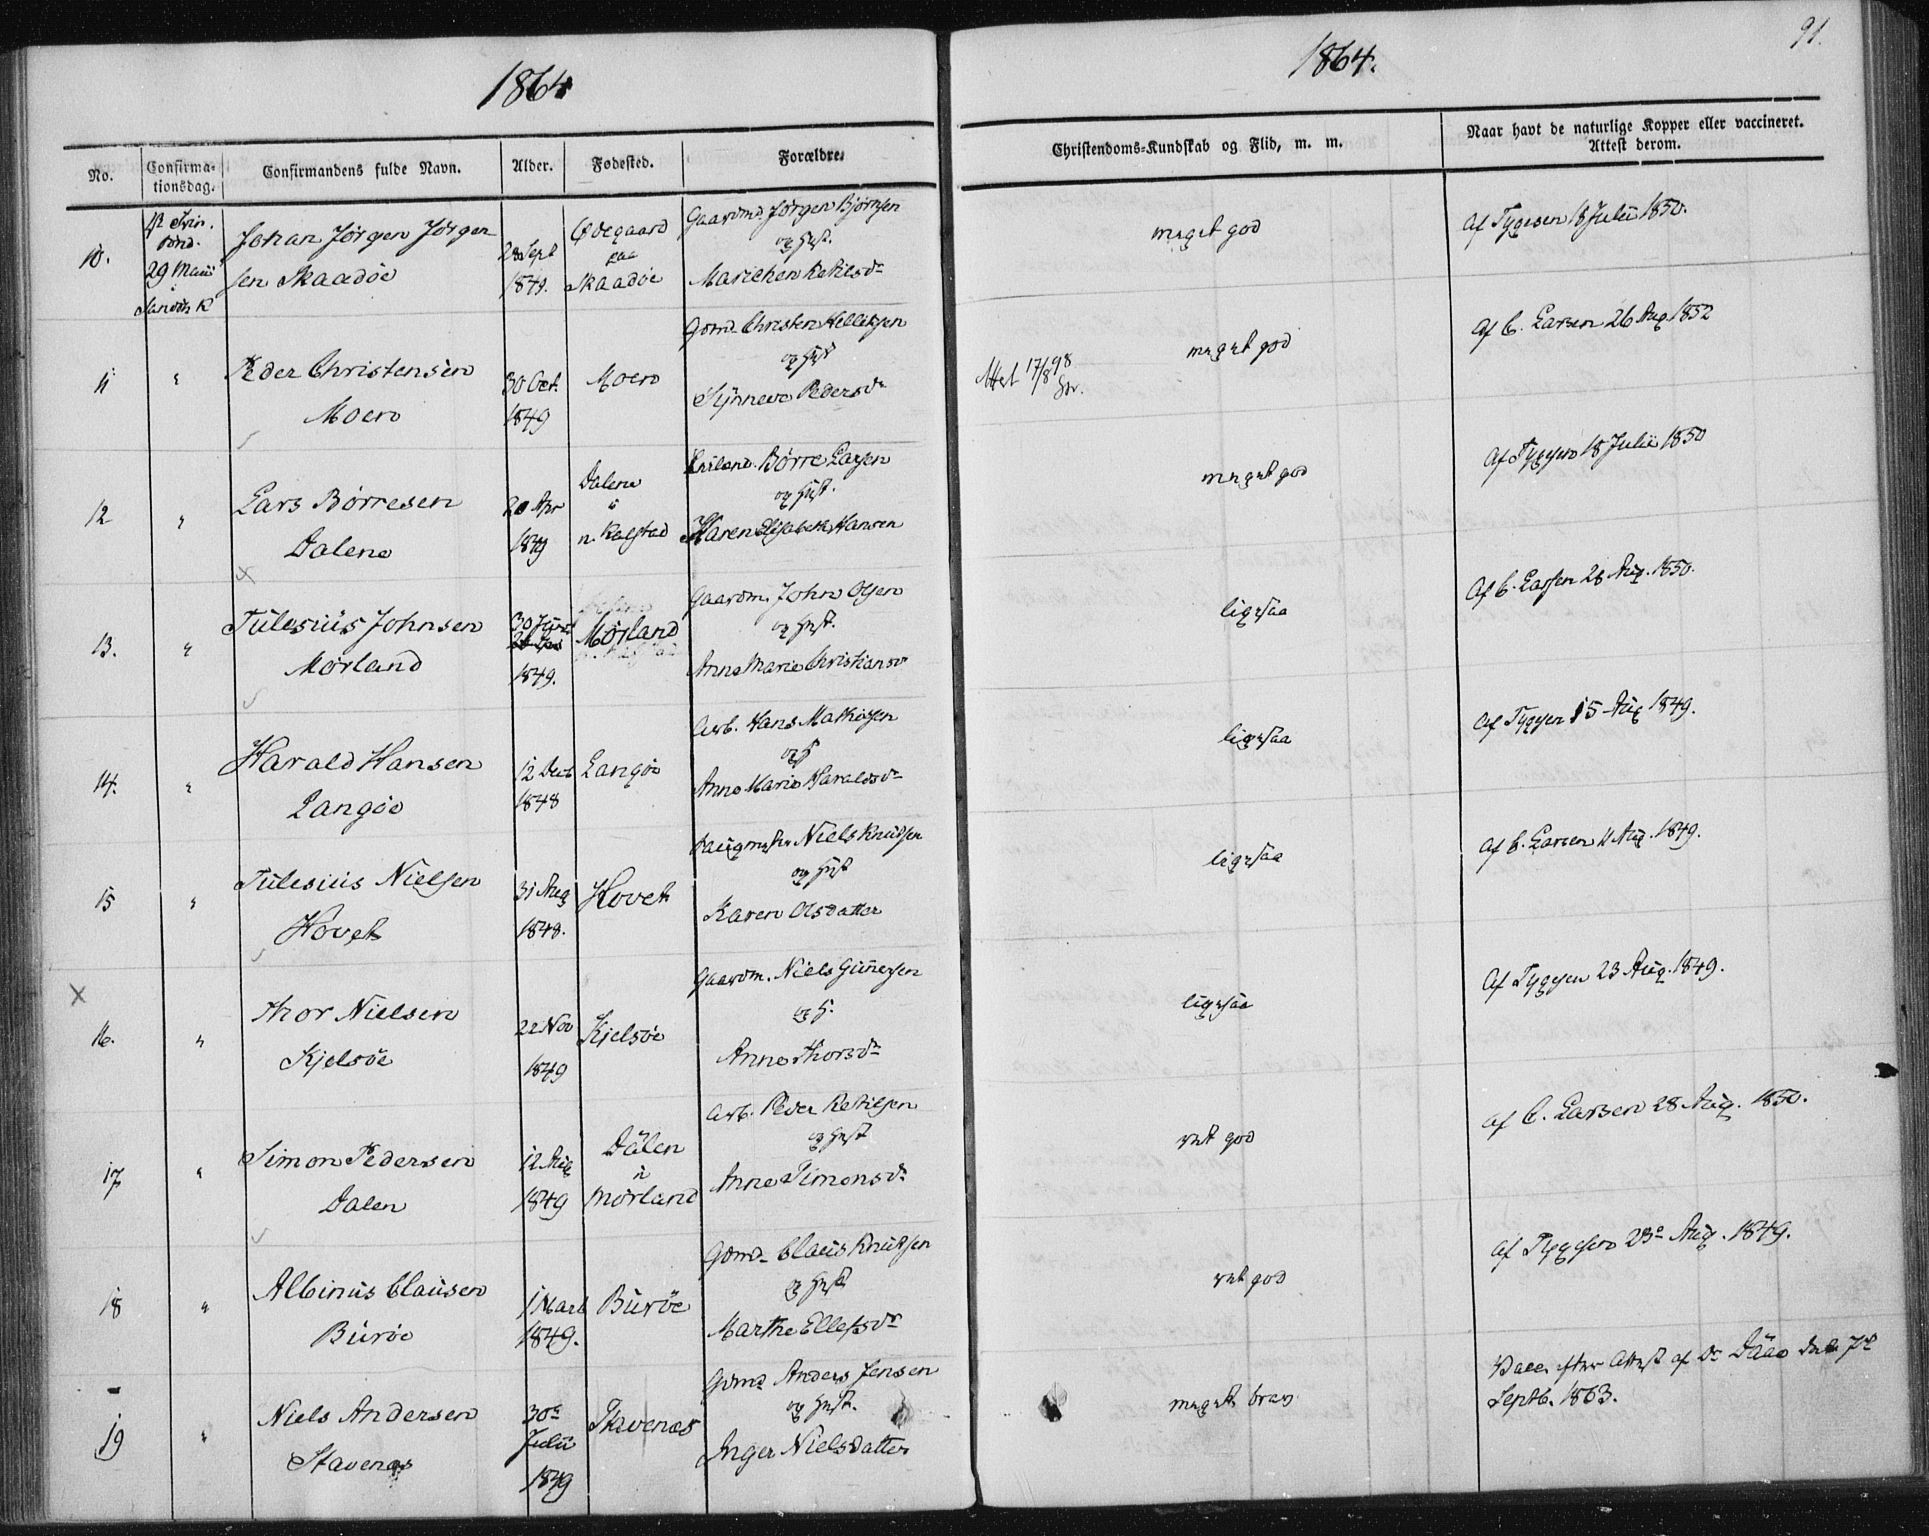 1864
No.
Confirma-
tionsdag.
Confirmandens fulde Navn.
Alder.
Fødested.
Forældre.
10.
29 Maii
Johan Jörgen Jörgen
sen Skaadöe
28 Sept
1849.
Ödegaard
paa
Skaadöe
Gaardmd. Jörgen Björnsen
og Hust.
Marichen Ketilsdr
11
"
Peder Christensen
Moen
30 Oct.
1849
Moen
Gdmd. Christen Kelletsen
og Hust
Synneve Pedersdr
12
"
Lars Börresen
Dalene
20 Apr
1849
Dalene
i
n. Kalstad
Börre Larsen
og Hust.
Karen Elisabeth Hansen
13.
"
Tulesius Johnsen
Mörland
30 Juni
1849.
Mörland
Gaardm. John Olsen
og Hust.
Anne Marie Christiansdr
14.
"
Harald Hansen
Langöe
12 Decb
1848
Langöe
Arb. Hans Mathisen
og H
Anne Marie Haraldsdr
15
"
Tulesius Nielsen
Hovet
31 Aug
1849.
Hovet
Niels Knudsen
og Hust
Karen Olsdatter
X
16.
"
Thor Nielsen
Kjelsöe
22 Nov
1849
Kjelsöe
Gaardm. Niels Gunersen
og H.
Anne Thorsdr
17
"
Simon Pedersen
Dalen
12 Aug
1849
Dalen
u
Mörland
Arb. Peder Ketilsen
og Hust
Anne Simonsdr
18
"
Albinus Clausen
Buröe
1 Mart
1849.
Buröe
Gdmd. Claus Knutsen
og Hust
Marthe Ellefsdr
19
"
Niels Andersen
Stavenæs
30te
Julii
1849
Stavenæs
Gdmd. Anders Jensen
og Hust.
Inger Nielsdatter
1864.
91.
Christendoms-Kundskab og Flid, m. m.
Naar havt de naturlige Kopper eller vaccineret.
Attest derom.
meget god
Af Tygesen 18 Julii 1850.
Attest 17/8 98
meget god
Af C. Larsen 26 Aug 1852
meget god
Af Tygesen 18 Julii 1850
ligesaa
Af C. Larsen 28 Aug. 1850.
ligesaa
Af Tygesen 15 Aug 1849.
ligesaa
Af C. Larsen 11 Aug. 1849.
ligesaa
Af Tygesen 23 Aug. 1849.
ret god
Af C. Larsen 28 Aug. 1850.
ret god
Af Tygesen 23e Aug. 1849.
meget brav
Vacc. efter Attest af Dr Daae 7de
Septb. 1863.